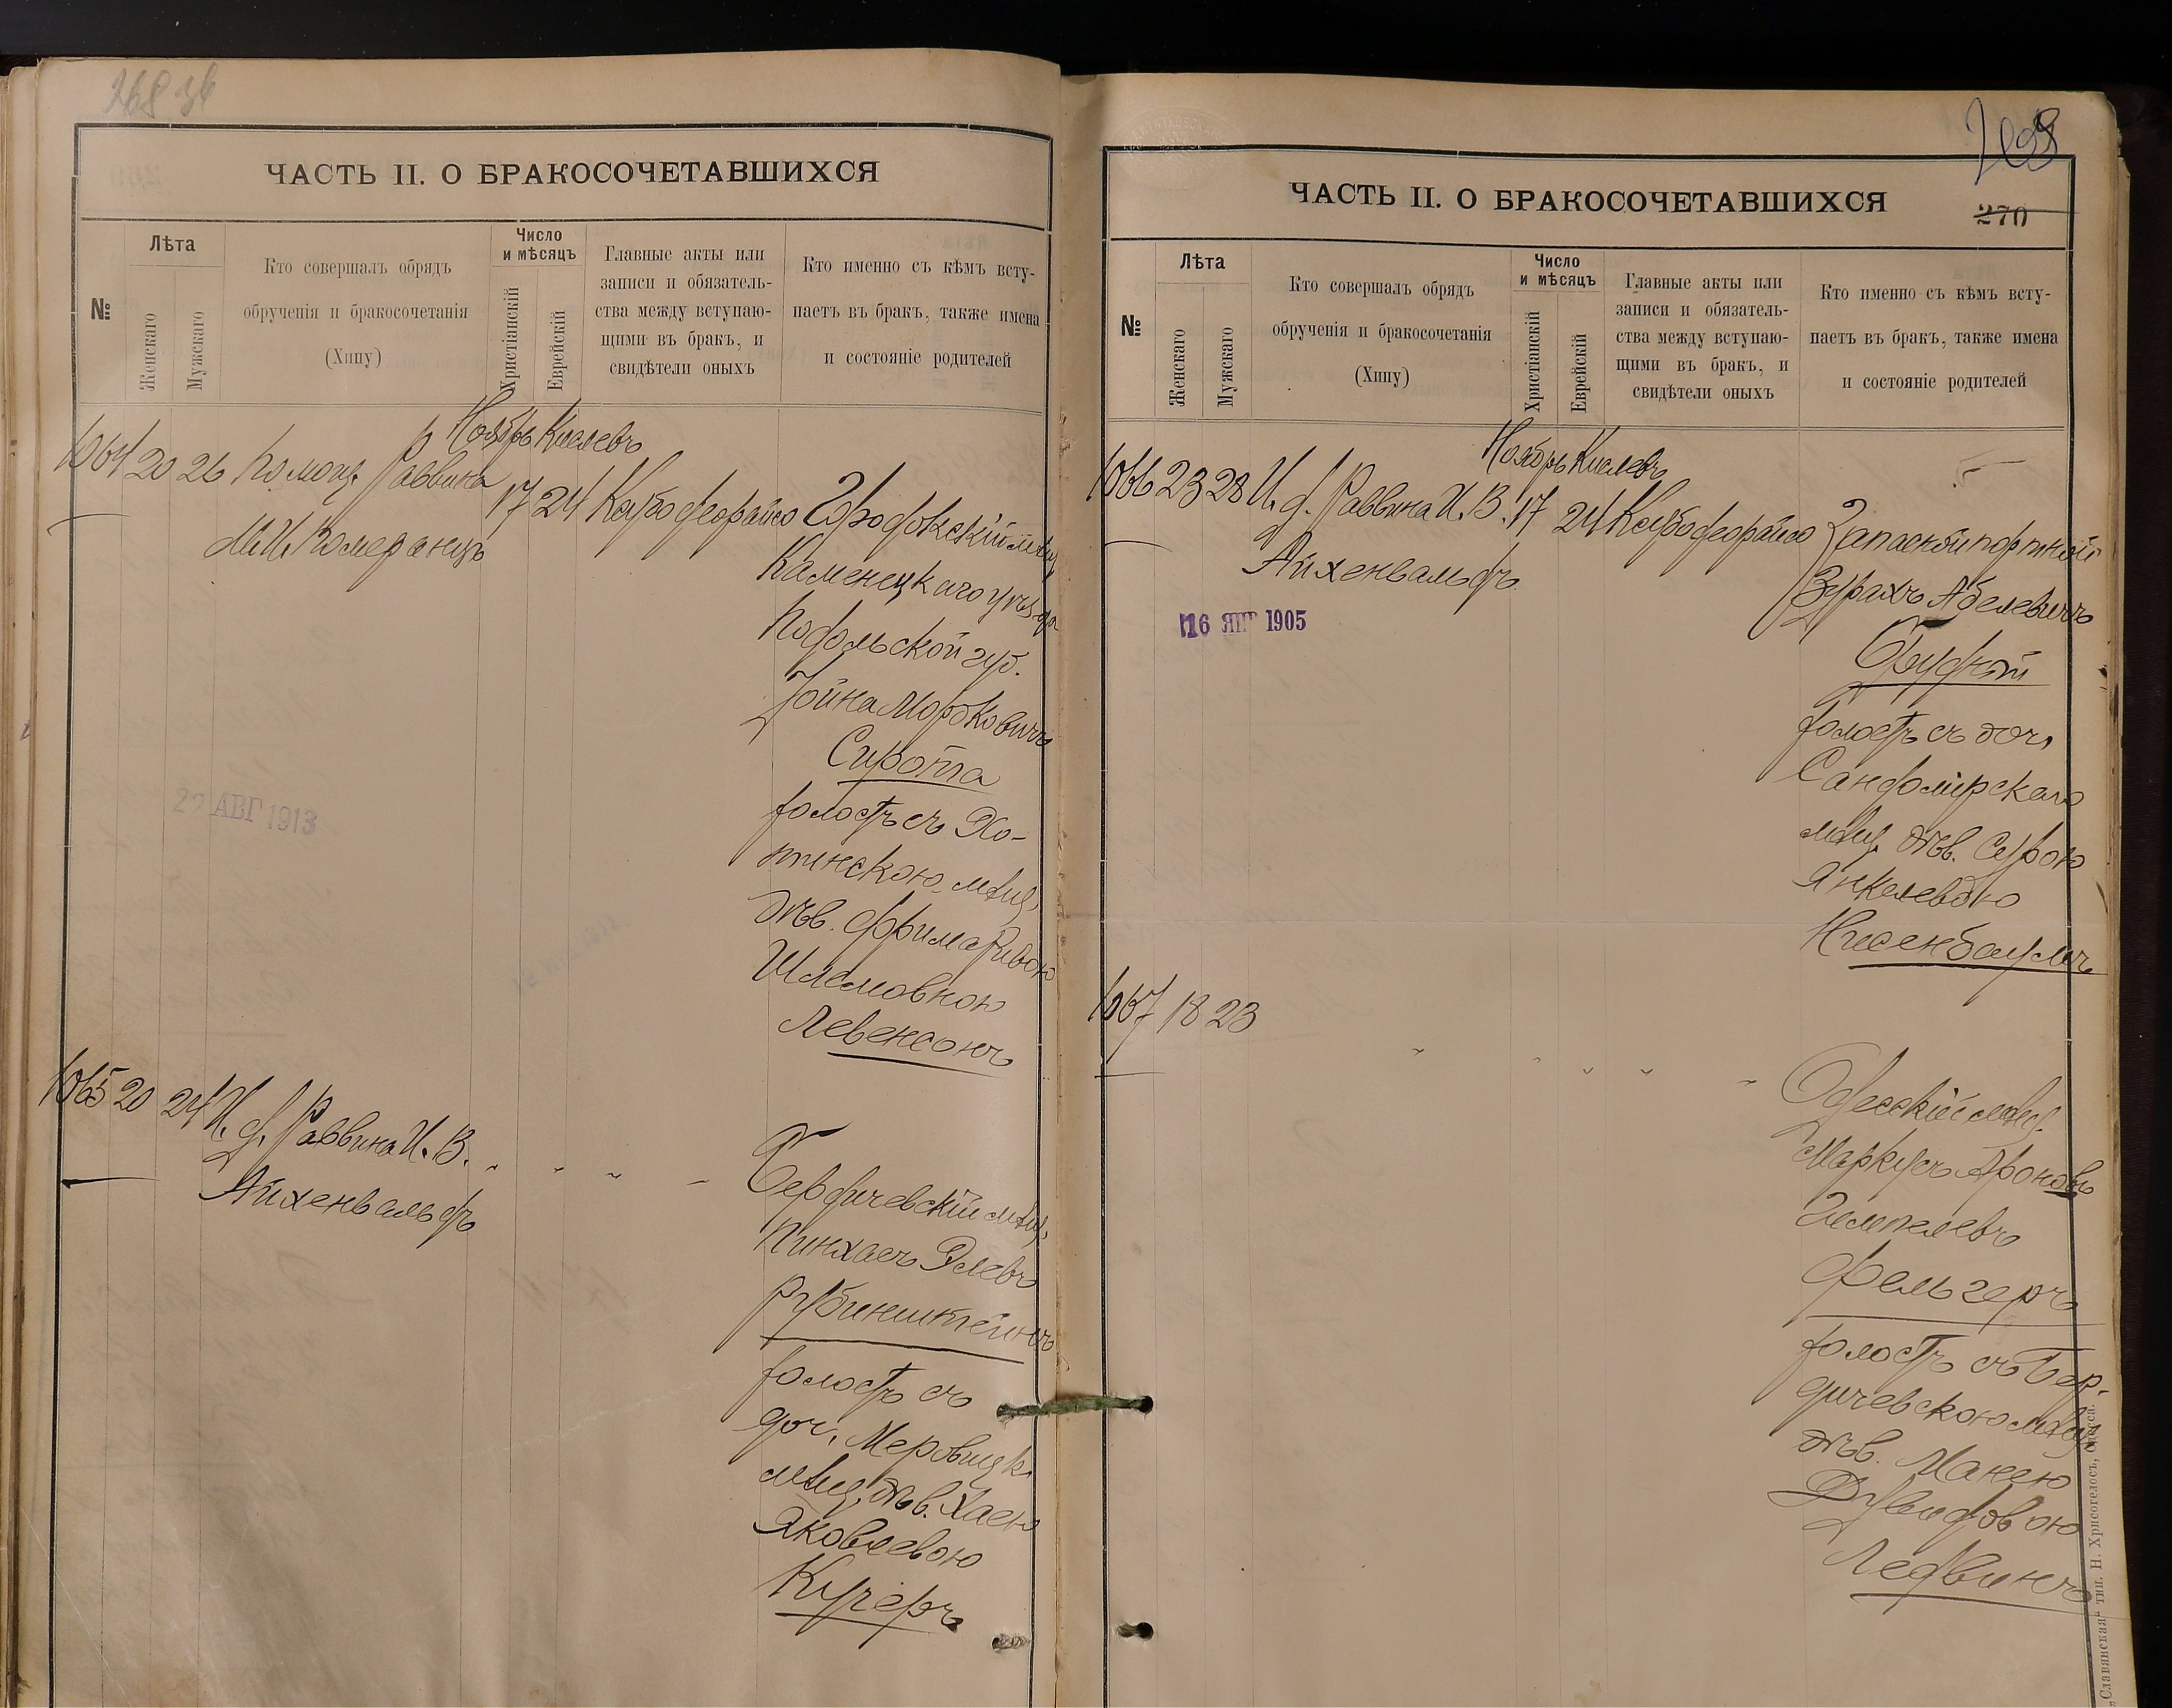 268 зв
ЧАСТЬ II. О БРАКОСОЧЕТАВШИХСЯ
№
Лѣта
Женскаго
Мужскаго
Кто совершалъ обрядъ
обрученія и бракосочетанія
(Хипу)
Число
и мѣсяцъ
Христіанскій
Еврейскій
Главные акты или
записи и обязатель-
ства между вступаю-
щими въ бракъ, и
свидѣтели оныхъ
Кто именно съ кѣмъ всту-
паетъ въ бракъ, также имена
и состояніе родителей
Ноябрь Кислевъ
1064 20 26 Помощ. Раввина
М.И. Померанцъ
17 24
Городокскій мѣщ.
Каменецкаго уѣзда
Подольской губ.
Іойна Мордковичъ
Сирота
холостъ съ Хо-
тинскою мѣщ.
дѣв. Фрима Ривою
Шлемовною
Левенсонъ
22 АВГ 1913
1065 20 24 И. д. Раввина И. В.
Айхенвальдъ
" " " "
Бердичевскій мѣщ.
Пинхасъ Элевъ
Рубинштейнъ
холостъ съ
доч.
мѣщ. дѣв. Хаею
Яковлевою
Кучеръ
ЧАСТЬ II. О БРАКОСОЧЕТАВШИХСЯ
270
№
Лѣта
Женскаго
Мужскаго
Кто совершалъ обрядъ
обрученія и бракосочетанія
(Хипу)
Число
и мѣсяцъ
Христіанскій
Еврейскій
Главные акты или
записи и обязатель-
ства между вступаю-
щими въ бракъ, и
свидѣтели оныхъ
Кто именно съ кѣмъ всту-
паетъ въ бракъ, также имена
и состояніе родителей
Ноябрь Кислевъ
1066 23 28 И. д. Раввина И. В.
Айхенвальдъ
17 24
16 ЯНР 1905
Запасной портной
Зурахъ Абелевичъ
холостъ съ доч.
Сандомірскаго
мѣщ. дѣв. Сурою
Янкелевою
Нисенбаумъ
1067 18 23
" " " "
Одесскій мѣщ.
Маркусъ Ароновъ
Гимпелевъ
Фельгеръ
холостъ съ Бер-
дичевскою мѣщ.
дѣв. Манею
Дувидовою
Ледвинъ
„Славянская“ тип. Н. Хрисогелосъ, Одесса.